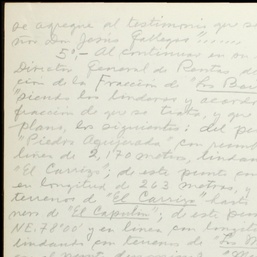 se agregue al testimonio que se
ñor Don Jesus Gallagos".......
5°.- Al continuar en
Director General de Rentas de
ción de la Fracción de "Los
siendo los linderos y acordo
fracción de que se trata, y que
plano, los siguientes: del
"Piedra Agujerada" con rumbo
línea de 2,170 metros, lindan
"El Carrizo"; de este punto con
en longitud de 263 metros, y
terrenos de "El Carrizo" hasta
nero de "El Capulin"; de este
NE. 78°00' y en línea con longitu
lindando con terrenos de "Los